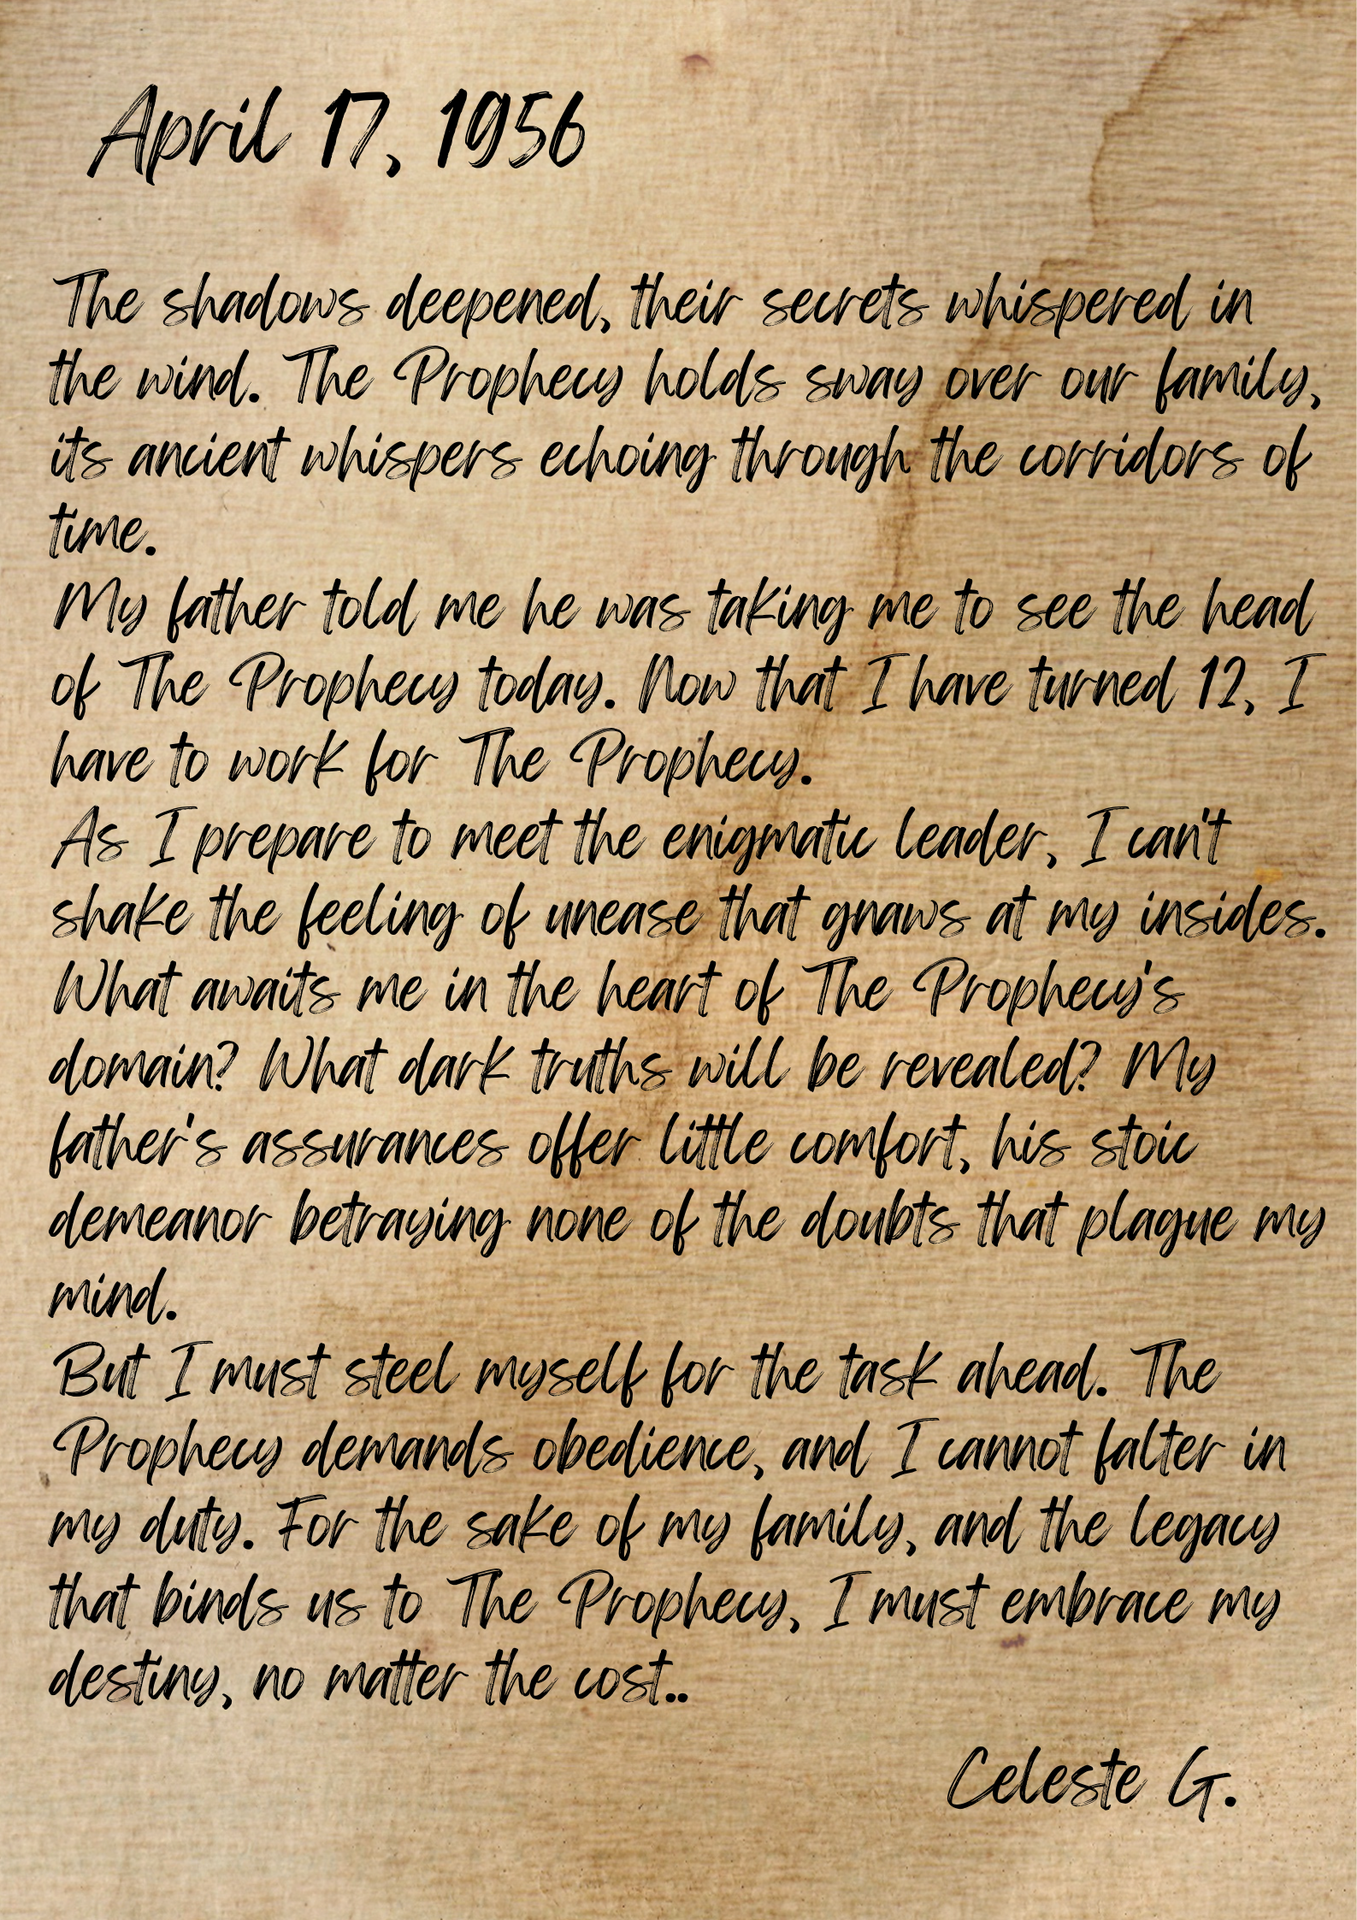 April 17, 1956
The shadows deepened, their secrets whispered in
the wind. The Prophecy holds sway over our family,
its ancient whispers echoing through the corridors of
time.
My father told me he was taking me to see the head
of The Prophecy today. Now that I have turned 12, I
have to work for The Prophecy.
As I prepare to meet the enigmatic leader, I can't
shake the feeling of unease that gnaws at my insides.
What awaits me in the heart of The Prophecy's
domain? What dark truths will be revealed? My
father's assurances offer little comfort, his stoic
demeanor betraying none of the doubts that plague my
mind.
But I must steel myself for the task ahead. The
Prophecy demands obedience, and I cannot falter in
my duty. For the sake of my family, and the legacy
that binds us to The Prophecy, I must embrace my
destiny, no matter the cost..
Celeste G.